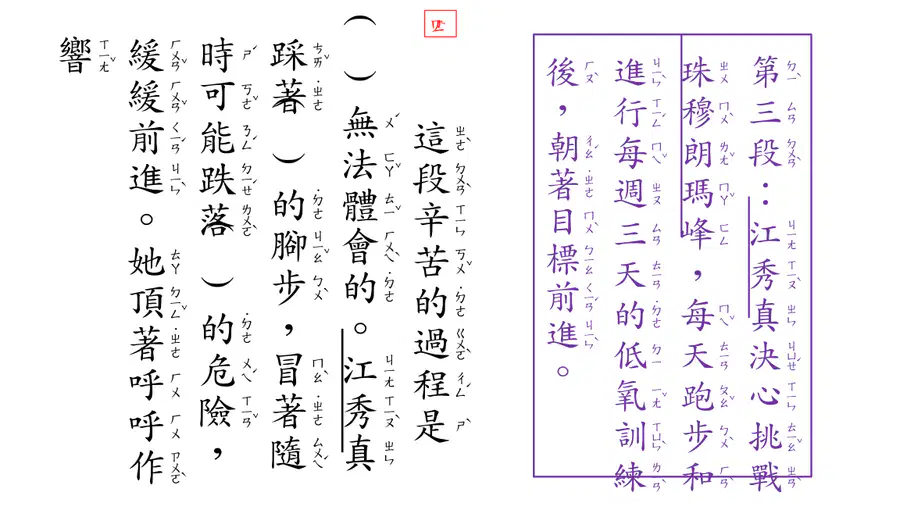 第三段：江秀真決心挑戰
珠穆朗瑪峰，每天跑步和
進行每週三天的低氧訓練
後，朝著目標前進。
這段辛苦的過程是
（ ）無法體會的。江秀真
踩著 ）的腳步，冒著隨
時可能跌落 ）的危險，
緩緩前進。她頂著呼呼作
響